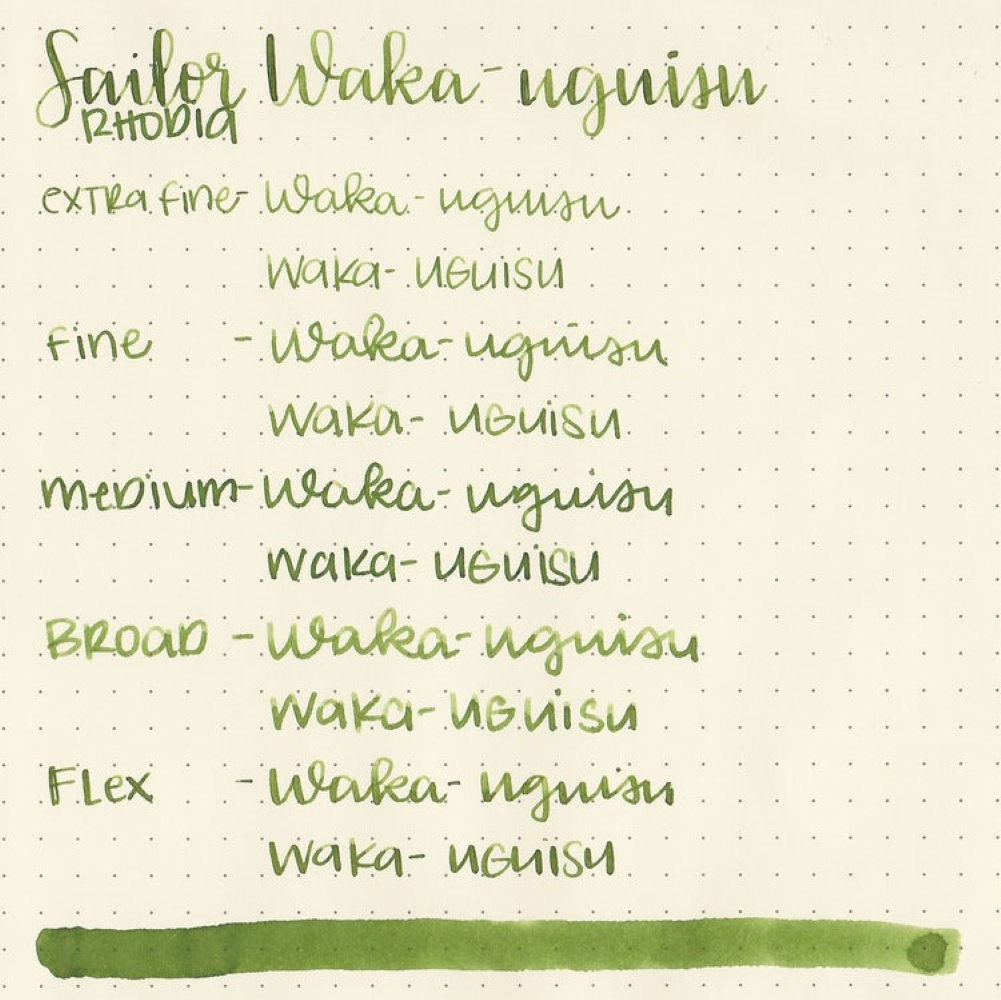 Sailor Waka-uguisu
RHODIA
extra fine- Waka-uguisu
Waka-uguisu
Fine - Waka-uguisu
Waka-uguisu
Medium- Waka-uguisu
Waka-uguisu
BROAD - Waka-uguisu
Waka-uguisu
FLex - Waka-uguisu
Waka-uguisu